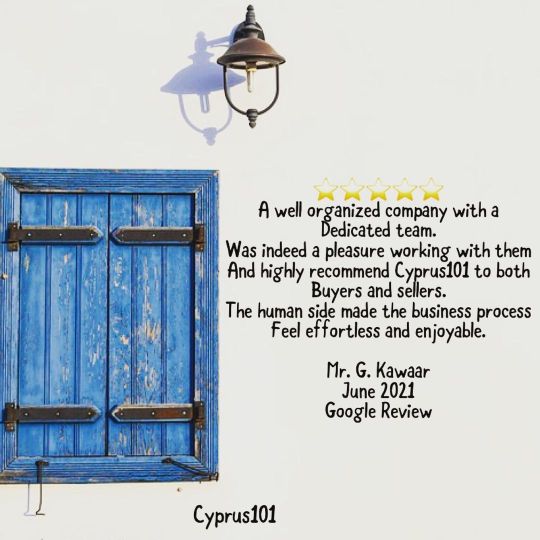 A well organized company with a
Dedicated team.
Was indeed a pleasure working with them
And highly recommend Cyprus101 to both
Buyers and sellers.
The human side made the business process
Feel effortless and enjoyable.
Mr. G. Kawaar
June 2021
Google Review
Cyprus101